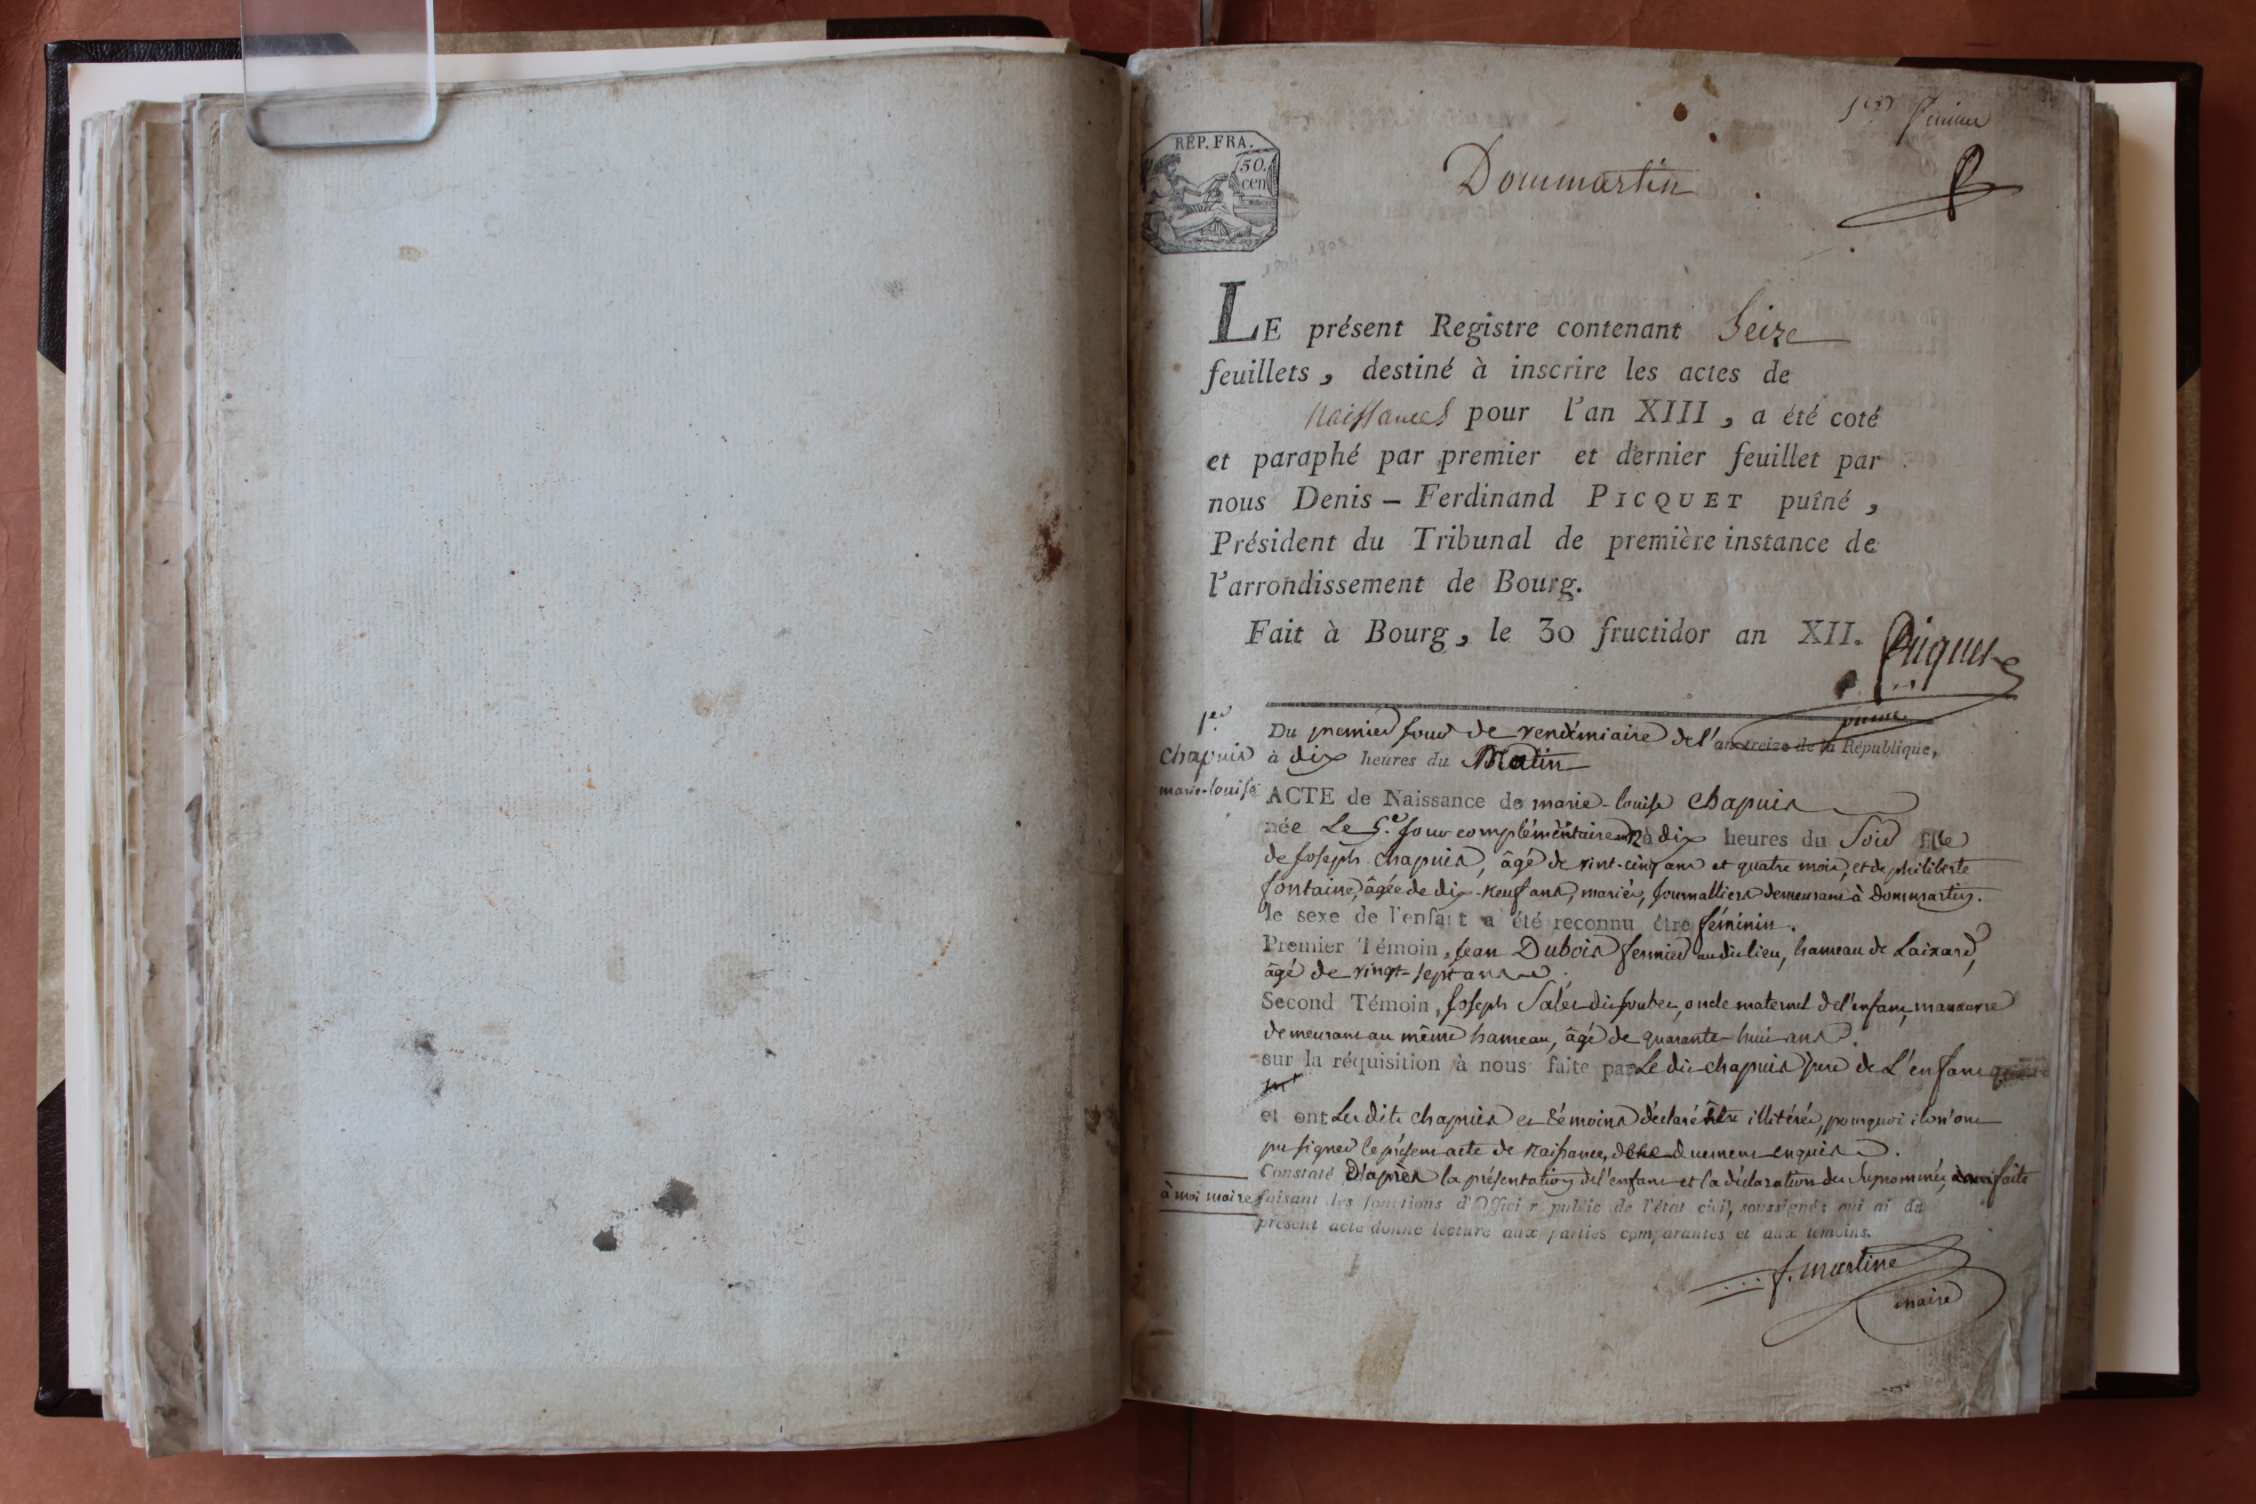 1er feuillet
RÉP. FRA.
50.
cen
Dommartin
LE présent Registre contenant Seize
feuillets, destiné à inscrire les actes de
Naissances pour l'an XIII, a été coté
et paraphé par premier et dernier feuillet par
nous Denis - Ferdinand PICQUET puîné,
Président du Tribunal de première instance de
l'arrondissement de Bourg.
Fait à Bourg, le 30 fructidor an XII.
Picquet
puiné
1er
chapuis
marie-louise
Du premier jour de vendémiaire de l'an treize de la République,
à dix heures du Matin
ACTE de Naissance de marie-louise chapuis
née Le 5.e jour complémentaire an 12 à dix heures du Soir fille
de joseph chapuis, âgé de vint-cinq ans et quatre mois, et de philiberte
fontaine, âgée de dix-neuf ans, mariés, journalliers demeurant à Dommartin.
le sexe de l'enfant a été reconnu être féminin.
Premier Témoin, jean Dubois fermier audit lieu, hameau de Laixard,
âgé de vingt-sept ans
Second Témoin, joseph Sales dit joubet, oncle maternel de l'enfant, manoeuvre
demeurant au même hameau, âgé de quarante-huit ans.
sur la réquisition à nous faite par Le dit chapuis père de L'enfant
et ont Les dits chapuis et témoins déclaré être illitérés, pourquoi ils n'ont
pu signer le présent acte de naissance, de ce duement enquis.
Constaté D'après la présentation de l'enfant et la déclaration des susnommés, faite
à moi maire
faisant les fonctions d'Officier public de l'état civil, soussigné; qui ai du
présent acte donné lecture aux parties comparantes et aux témoins.
f. martine
maire